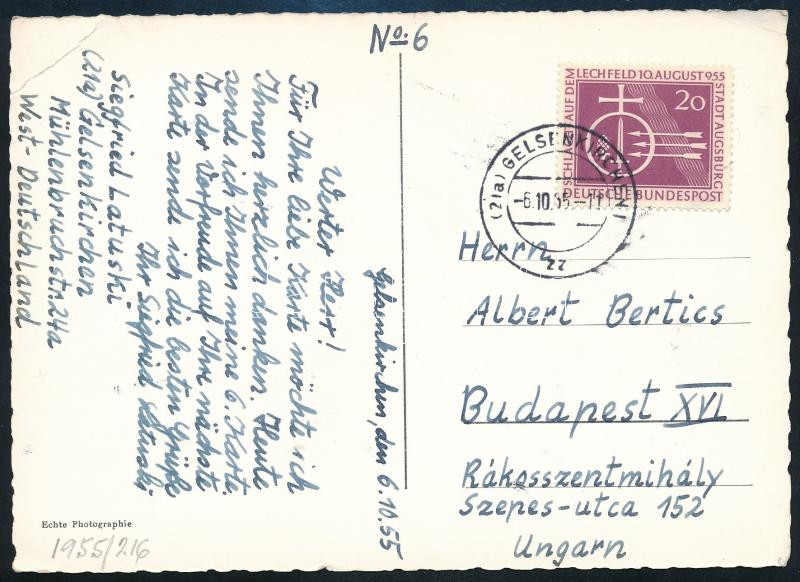 No. 6
Gelsenkirchen, den 6.10.55
Werter Herr!
Für Ihre liebe Karte möchte ich
Ihnen herzlich danken. Heute
sende ich Ihnen meine 6. Karte.
In der Vorfreude auf Ihre nächste
Karte send ich die besten Grüße
Ihr Siegfried Latuski
Siegfried Latuski
(21a) Gelsenkirchen
Mühlenbruchstr. 24a
West-Deutschland
Echte Photographie
1955/216
SCHLACHT AUF DEM LECHFELD 10.AUGUST 955 STADT AUGSBURG
20
DEUTSCHE BUNDESPOST
(21a) GELSENKIRCHEN 1
-6.10.55-11
zz
Herrn
Albert Bertics
Budapest XVI
Rákosszentmihály
Szepes-utca 152
Ungarn